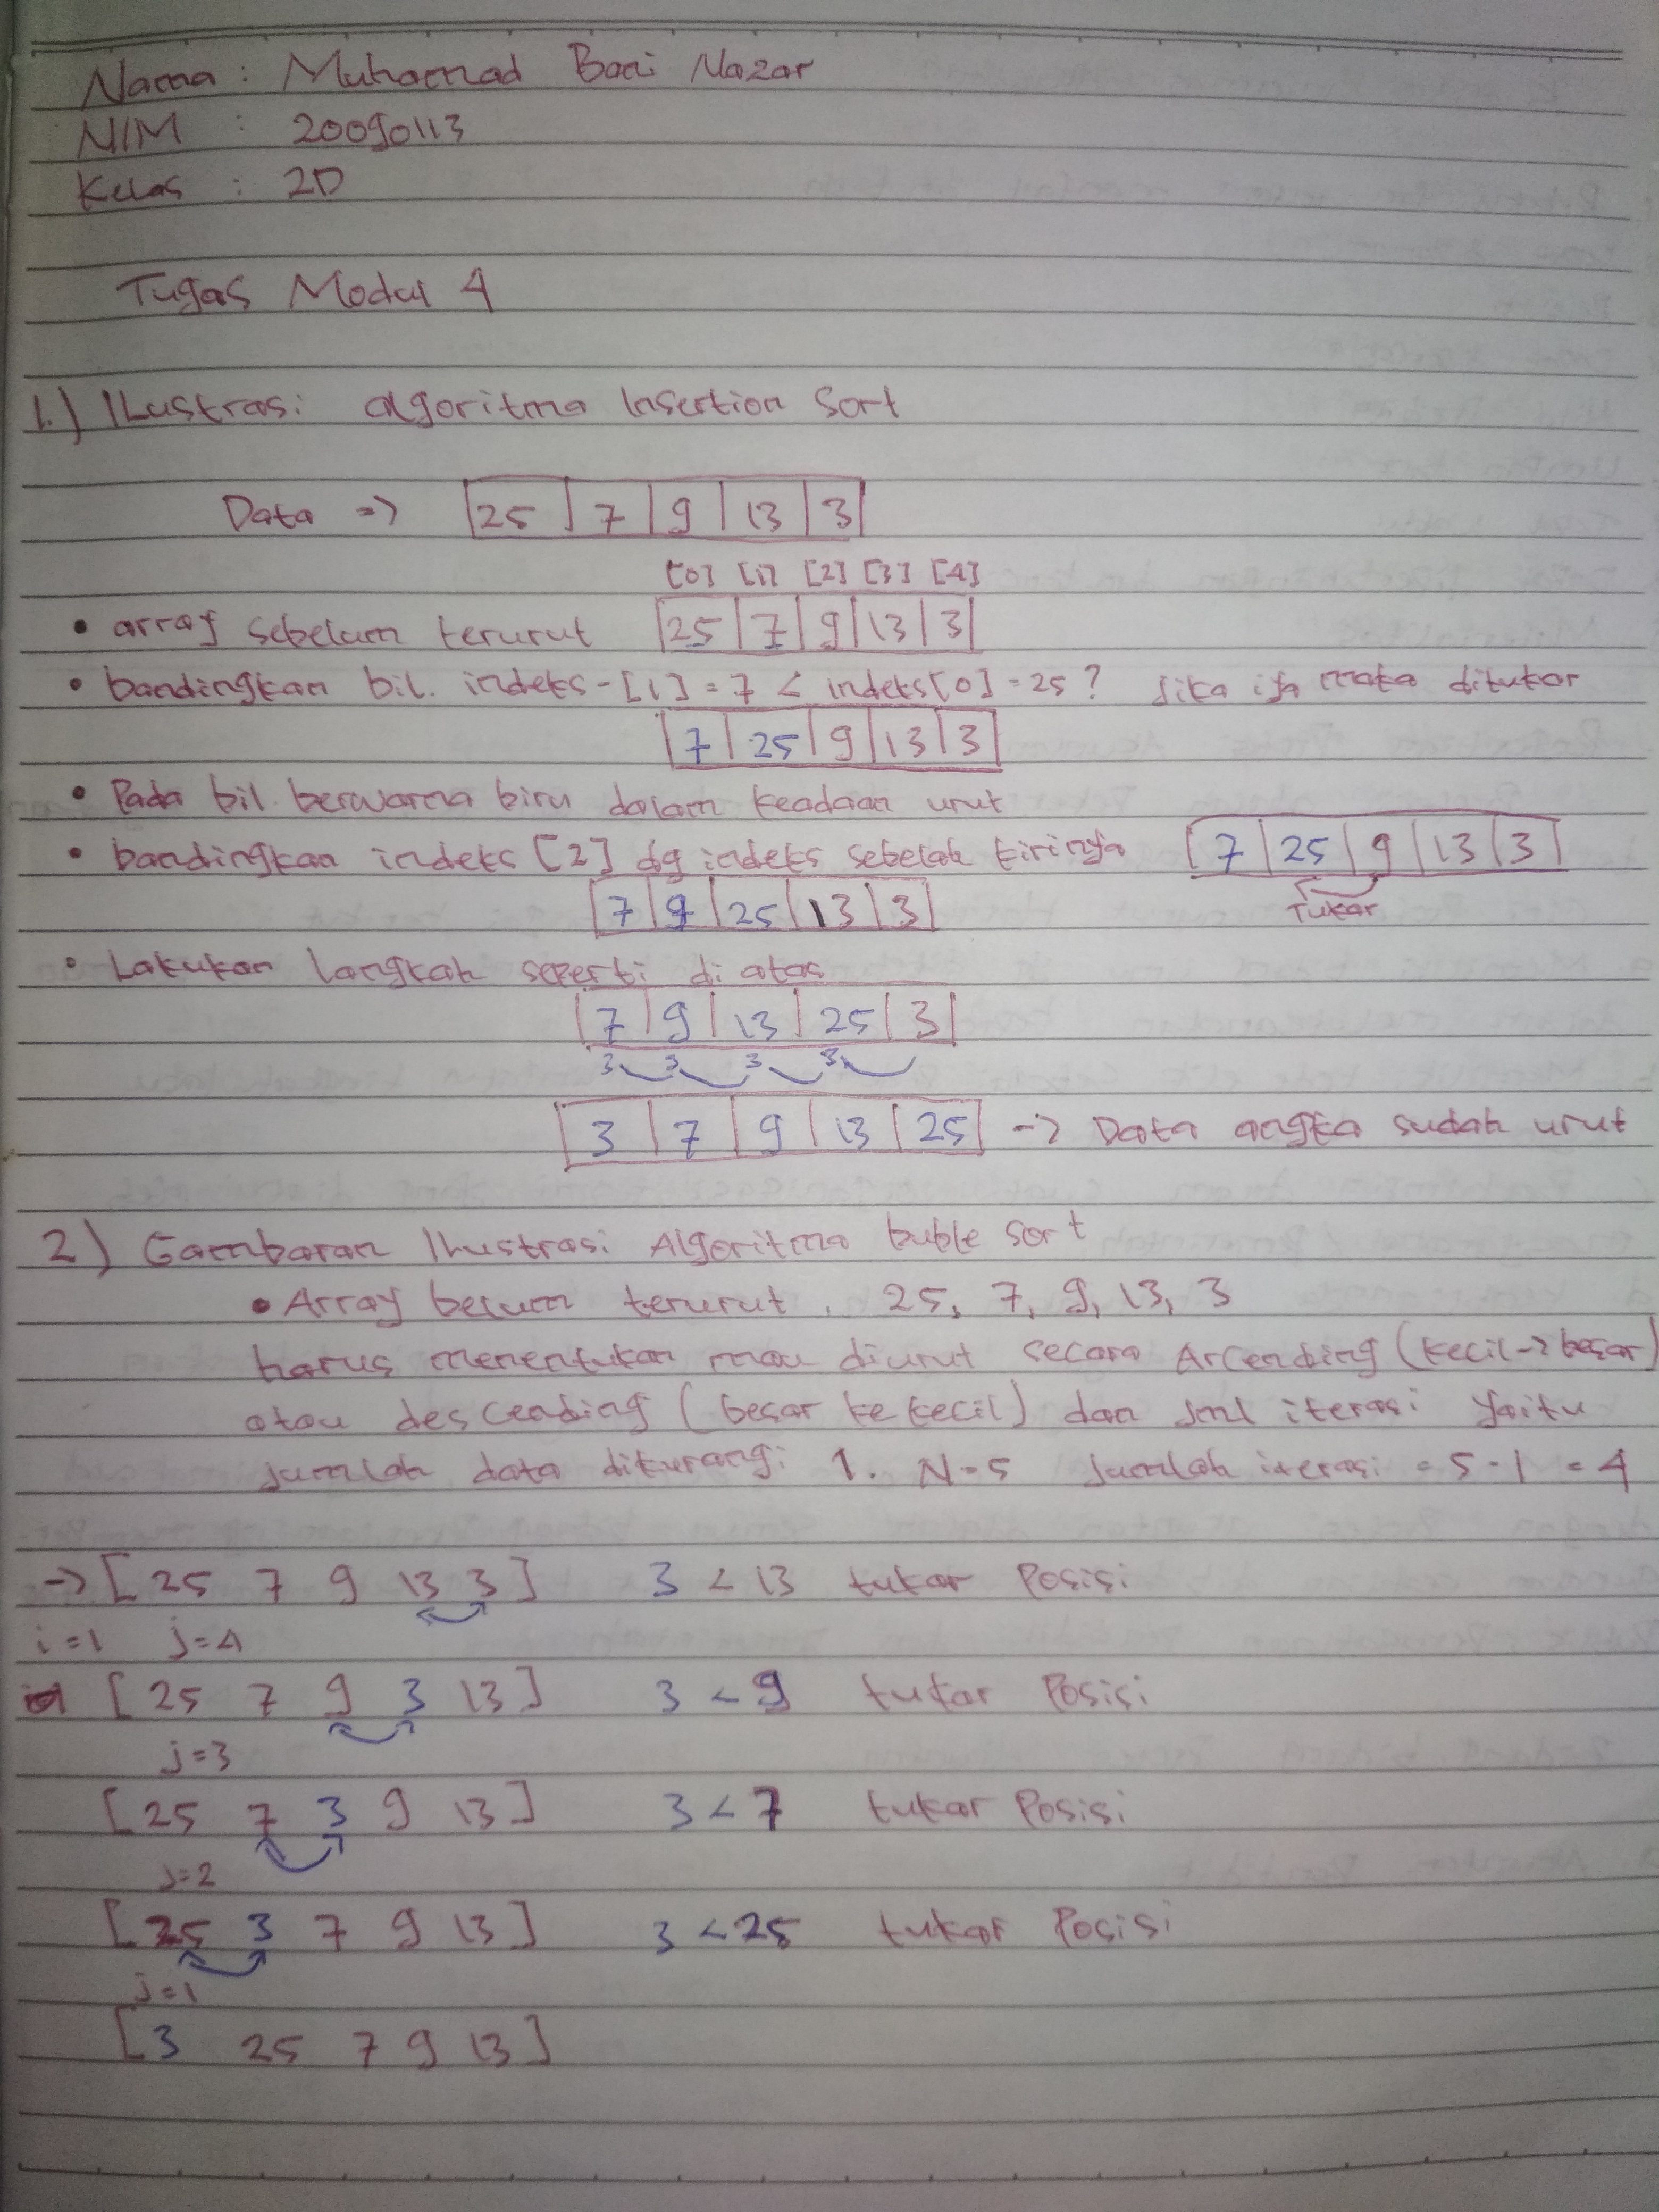 Nama : Muhamad Bani Nazar
NIM : 20090113
Kelas : 2D
Tugas Modul 4
1.) Ilustrasi algoritma Insertion Sort
Data => |25|7|9|13|3|
[0] [1] [2] [3] [4]
• array sebelum terurut |25|7|9|13|3|
• bandingkan bil. indeks-[1] = 7 < indeks[0] = 25? Jika iya maka ditukar
|7|25|9|13|3|
• Pada bil. berwarna biru dalam keadaan urut
• bandingkan indeks [2] dg indeks sebelah kirinya |7|25|9|13|3|
Tukar
|7|9|25|13|3|
• Lakukan langkah seperti di atas
|7|9|13|25|3|
3 3 3 3
|3|7|9|13|25| -> Data angka sudah urut
2) Gambaran Ilustrasi Algoritma buble sort
• Array belum terurut, 25, 7, 9, 13, 3
harus menentukan mau diurut secara Arcending (kecil -> besar)
atau descending (besar ke kecil) dan Jml iterasi yaitu
jumlah data dikurangi 1. N=5 Jumlah iterasi = 5-1 = 4
-> [25 7 9 13 3] 3 < 13 tukar Posisi
i=1 j=4
[25 7 9 3 13] 3 < 9 tukar Posisi
j=3
[25 7 3 9 13] 3 < 7 tukar Posisi
j=2
[25 3 7 9 13] 3 < 25 tukar Posisi
j=1
[3 25 7 9 13]